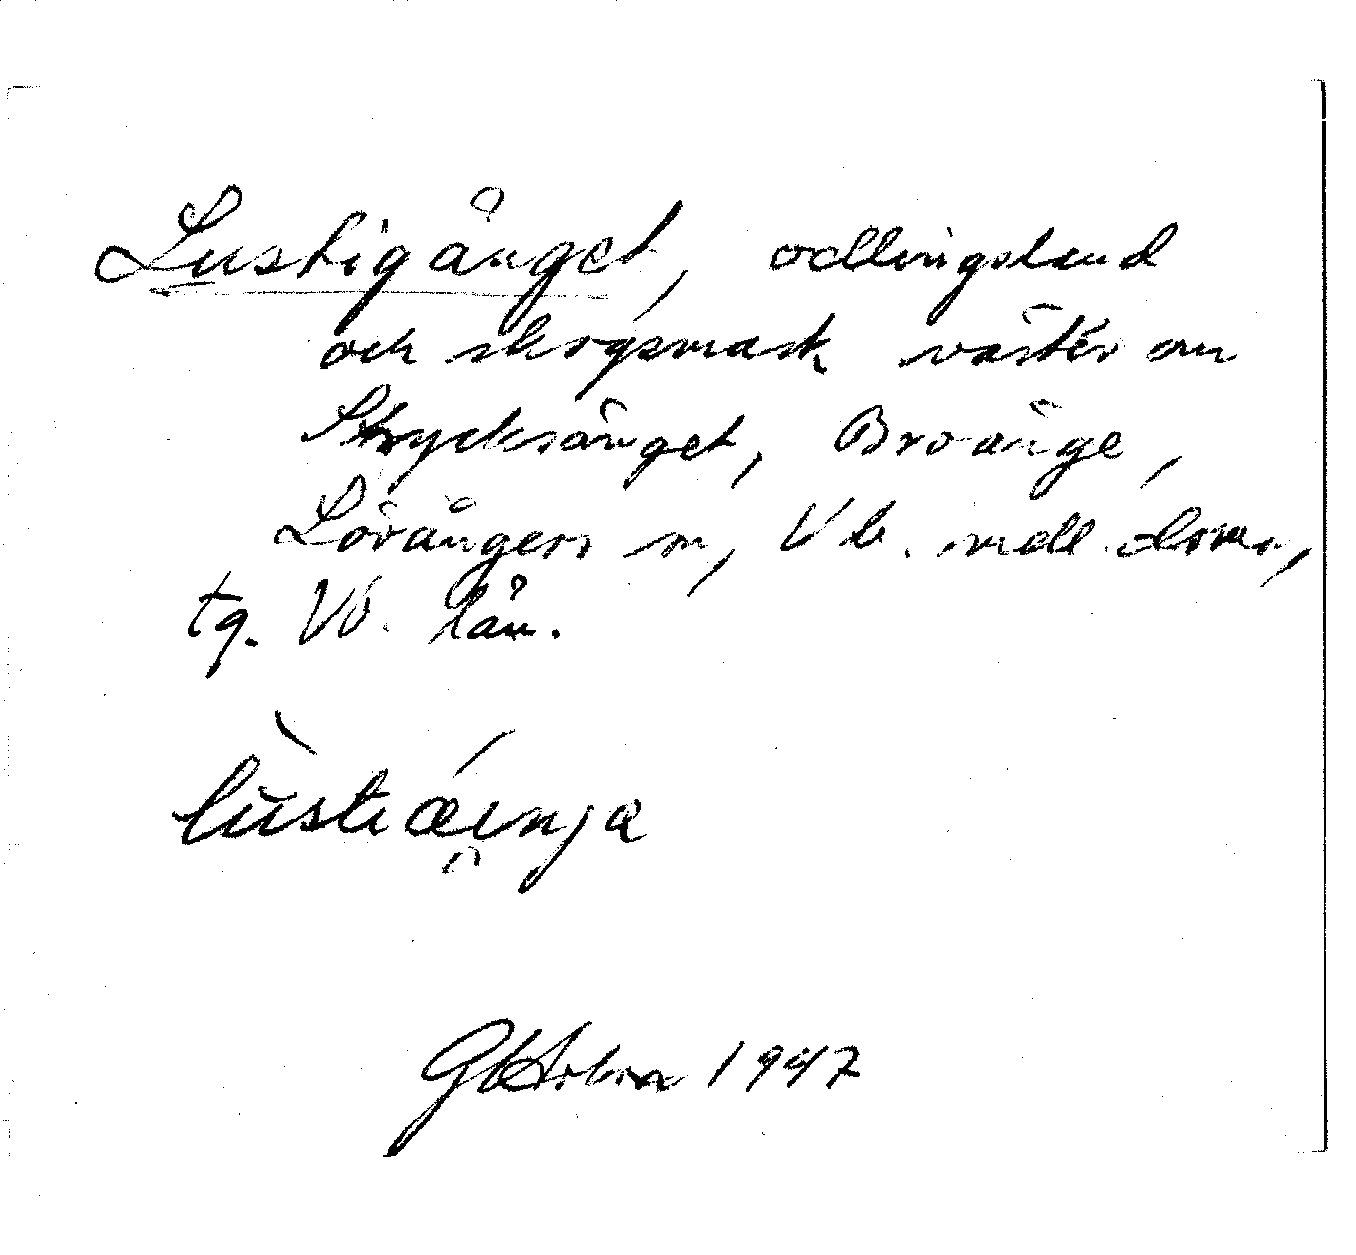 Lustigänget, odlingsland
och skogsmark väster om
Strycksänget, Broänge,
Lövångers sn, Vb. mell. doms,
tg. Vb. län.
lùsti ǽi̯nja
1947